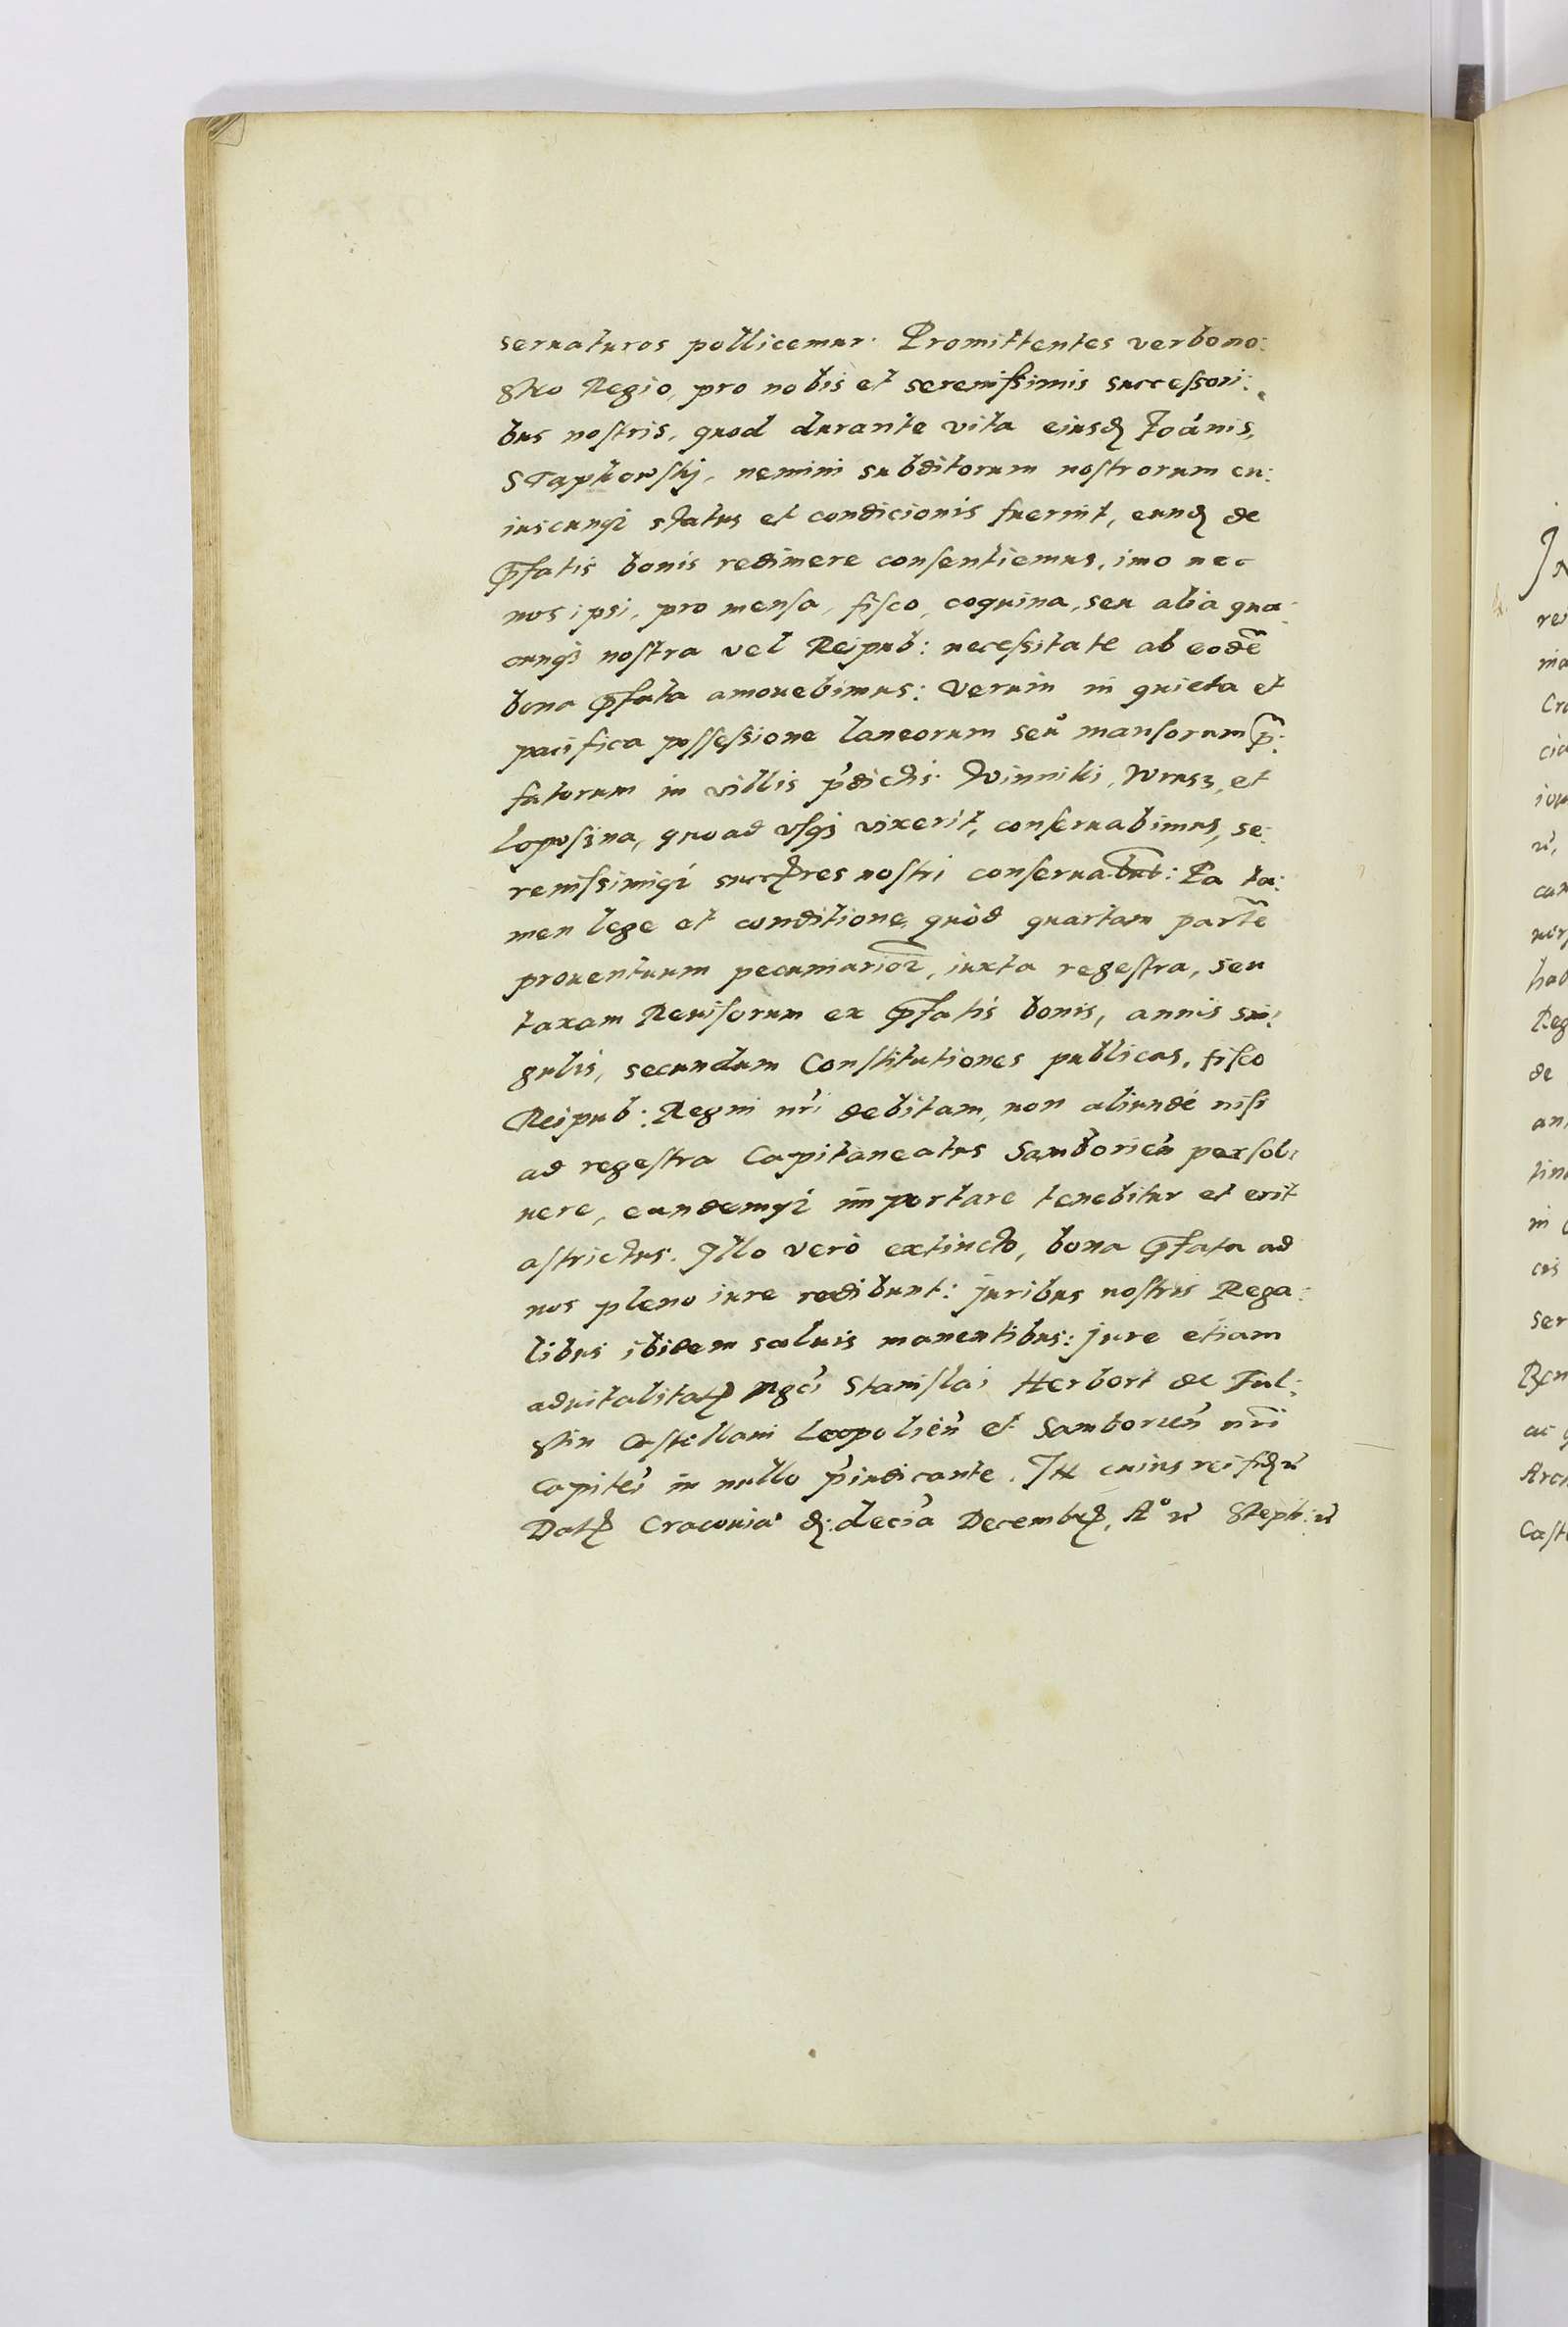 seruaturos pollicemur. Promittentes verbo no:
stro Regio, pro nobis et serenissimis successori:
bus nostris, quod durante vita eiusd Joānis,
Stapkowskj, nemini subditorum nostrorum cu:
iuscunq3 status et condicionis fuerint, eund de
p̄fatis bonis redimere consentiemus, imo nec
nos ipsi, pro mensa, fisco, coquina, seu alia qua:
cunq3 nostra vel Reipub: necessitate ab eodē
bona p̄fata amouebimus: Verum in quieta et
pacifica possessione laneorum seu mansorum p̄:
fatorum in villis p̄dictis Winniki, Wrusz, et
Lopuszna, quoad vsq3 vixerit, conseruabimus, se:
renissimiq3 successores nostri conseruabūt: Ea ta:
men lege et conditione, quòd quartam partē
prouentuum pecuniarioꝝ, iuxta regestra, seu
taxam Reuisorum ex p̄fatis bonis, annis sin:
gulis, secundum Constitutiones publicas, fisco
Reipub: Regni nr̄i debitam, non aliunde nisi
ad regestra Capitaneatus Samborieñ persol:
uere, eandemq3 importare tenebitur et erit
astrictus. Illo verò extincto, bona p̄fata ad
nos pleno iure redibunt: juribus nostris Rega:
libus ibidem saluis manentibus: jure etiam
aduitalitatꝭ Mgci Stanislai Herbort de Ful:
stin Castellani Leopolieñ et Samborieñ nr̄i
Capitei in nullo p̄iudicante. In cuius rei fidem
Datꝭ Cracouiæ d: decia Decembrꝭ, A° Steph: